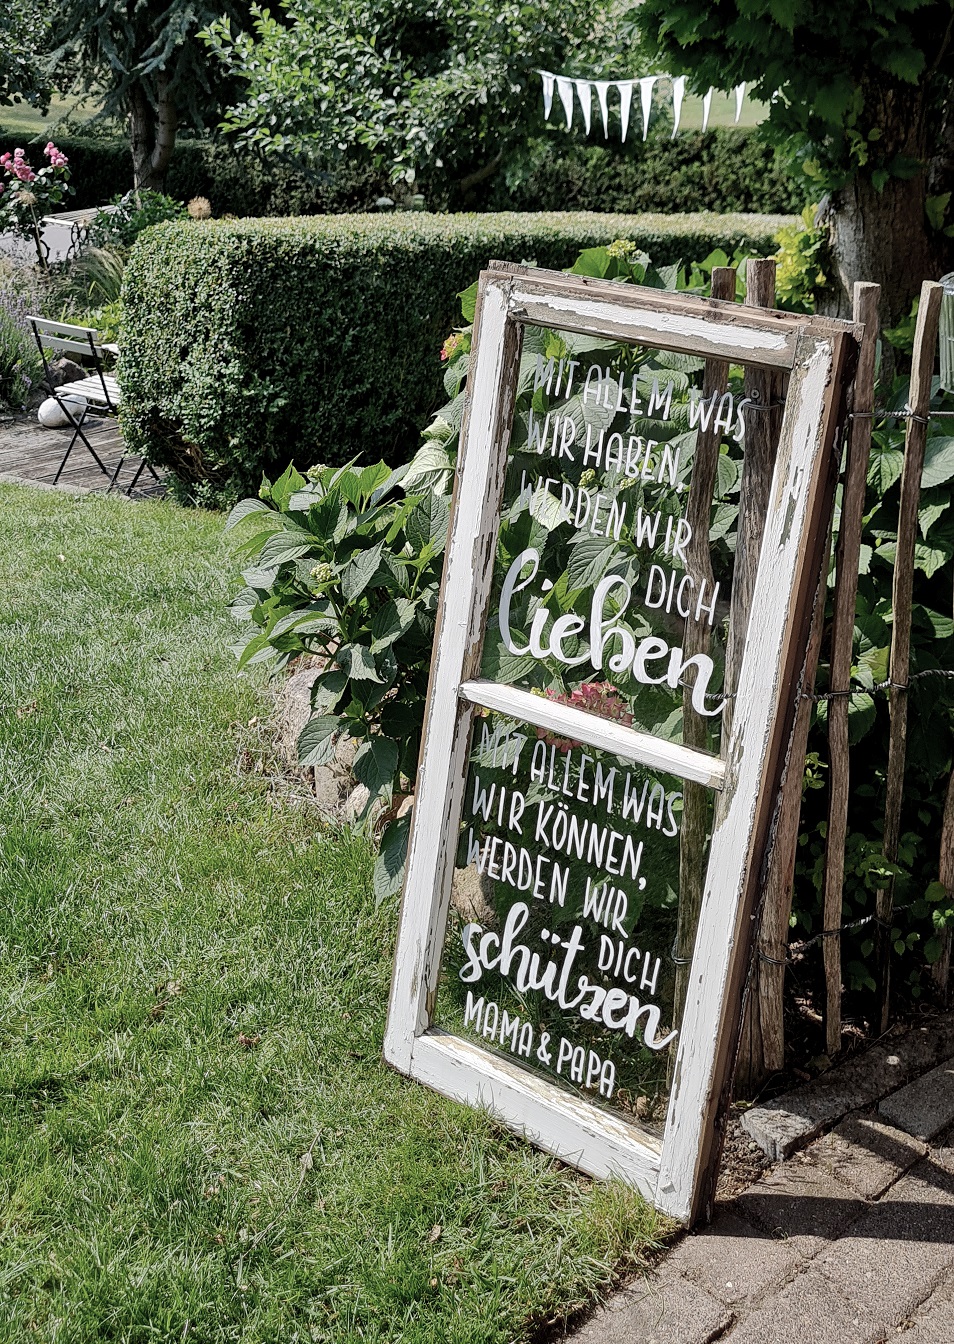 MIT ALLEM WAS
WIR HABEN,
WERDEN WIR
DICH
lieben
MIT ALLEM WAS
WIR KÖNNEN,
WERDEN WIR
DICH
schützen
MAMA & PAPA